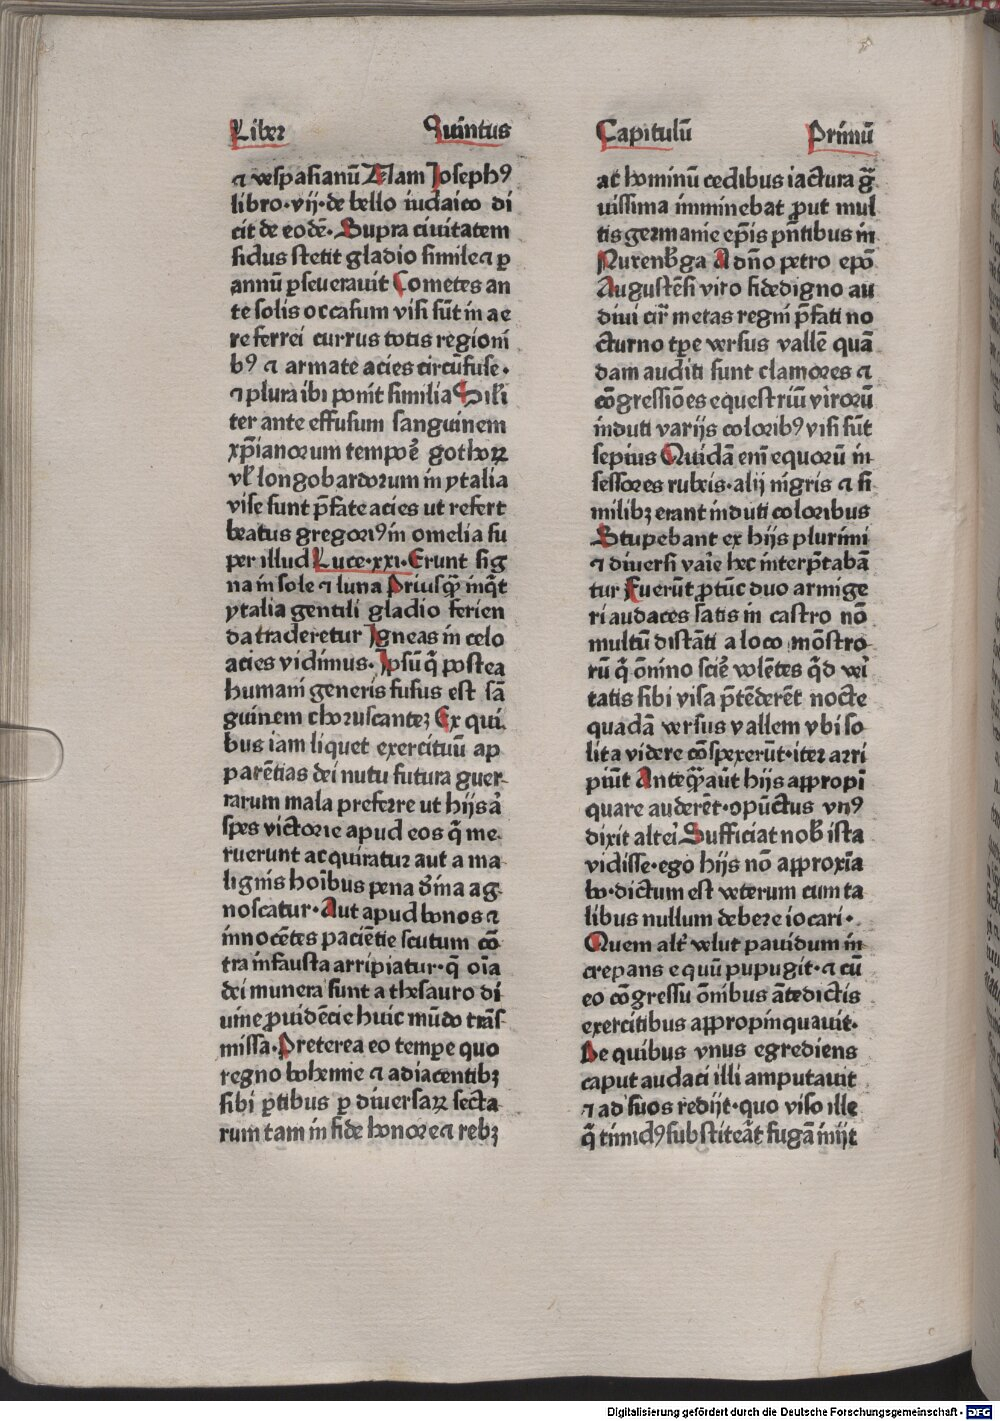 Liber Quintus
⁊ vespasianū Nam Josephꝰ
libro·vij·de bello iudaico di
cit de eodē· Supra ciuitatem
sidus stetit gladio simile⁊ ꝑ
annū ꝑseuerauit Cometes an
te solis occasum visi sūt in ae
re ferrei currus totis regioni
bꝰ ⁊ armate acies circūfuse·
⁊ plura ibi ponit similia Sili
ter ante effusum sanguinem
xp̄ianorum tempoē gothoꝝ
vl̓ longobardorum in ytalia
vise sunt p̄fate acies ut refert
beatus gregoriꝰ in omelia su
per illud Luce·xxi·Erunt sig
na in sole ⁊ luna Priusqᷓ inq̄t
ytalia gentili gladio ferien
da traderetur Igneas in celo
acies vidimus· Ipsū q̄ postea
humani generis fusus est sā
guinem choruscantēꝫ Ex qui
bus iam liquet exercituū ap
parētias dei nutu futura guer
rarum mala preferre ut hijs ā
spes victorie apud eos q̄ me
ruerunt acquiratur aut a ma
lignis hoībus pena dīna ag
noscatur·Aut apud bonos ⁊
innocētes paciētie scutum cō
tra infausta arripiatur·q̄ oīa
dei munera sunt a thesauro di
uine ꝓuidēcie huic mūdo trās
missa·Preterea eo tempe quo
regno bohemie ⁊ adiacentibꝫ
sibi ꝑtibus ꝑ diuersaꝝ secta
rum tam in fide honore⁊ rebꝫ
Capitulū Primū
ac hominū cedibus iactura gᷓ
uissima imminebat ꝓut mul
tis germanie ep̄is pn̄tibus in
Nurenb̓ga A dn̄o petro epō
Augustēsi viro fidedigno au
diui cir̄ metas regni p̄fati no
cturno tꝑe versus vallē quā
dam auditi sunt clamores ⁊
cōgressiōes equestriū virorū
induti varijs coloribꝰ visi sūt
sepius Quidā eni equorū in
sessores rubeis·alij nigris ⁊ si
milibꝫ erant induti coloribus
Stupebant ex hijs plurimi
⁊ diuersi vaīe hec interp̄tabā
tur Fuerūt ꝓtūc duo armige
ri audaces satis in castro nō
multū distāti a loco mōstro
rū q̄ ōmino sciē volētes q̄d veī
tatis sibi visa p̄tēderēt nocte
quadā versus vallem vbi so
lita videre cōspexerūt·iter arri
piūt Anteqᷓ aūt hijs appropi
quare auderēt·opūctus vnꝰ
dixit alteī Sufficiat nob̓ ista
vidisse·ego hijs nō approxīa
bo·dictum est veterum cum ta
libus nullum debere iocari·
Quem alt̓ velut pauidum in
crepans equū pupugit·⁊ cū
eo cōgressu ōnibus ātedictis
exercitibus appropinquauit·
De quibus vnus egrediens
caput audaci illi amputauit
⁊ ad suos redijt·quo viso ille
q̄ timidꝰ substiteāt fugā inijt
Digitalisierung gefördert durch die Deutsche Forschungsgemeinschaft - DFG